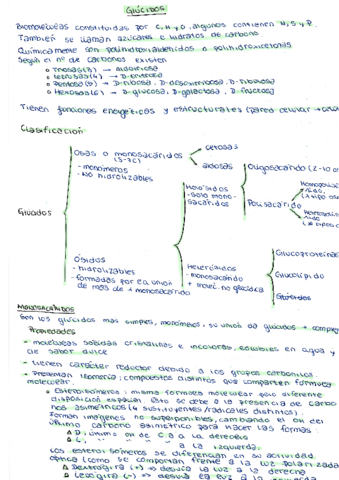 GLÚCIDOS
Biomoléculas constituidas por C, H y O, algunos contienen N, S y P.
También se llaman azúcares e hidratos de carbono
Químicamente son polihidroxialdehídos o polihidroxicetonas
Según el nº de carbonos existen
• Triosas (3) → aldotriosa
• Tetrosas (4) → D-eritrosa
• Pentosas (5) → D-ribosa, D-desoxirribosa, D-ribulosa
• Hexosas (6) → D-glucosa, D-galactosa, D-fructosa
Tienen funciones energéticas y estructurales (pared celular →
Clasificación:
Glúcidos
Osas o monosacáridos
(3-7C)
- monómeros
- No hidrolizables
cetosas
aldosas
Ósidos
- hidrolizables
- formadas por la unión
de más de 1 monosacárido
Holósidos
- solo mono-
sacáridos
Oligosacárido (2-10
Polisacárido
Heterósidos
- monosacárido
+ molec. no glucídica
Glucoproteínas
Glucolípido
MONOSACÁRIDOS
Son los glúcidos más simples, monómeros, su unión da glúcidos + comple
Propiedades
- moléculas sólidas cristalinas e incoloras, solubles en agua y
de sabor dulce
- tienen carácter reductor debido a los grupos carbonilos.
- Presentan isomería; compuestos distintos que comparten fórmula
molecular
• Estereoisómeros: misma fórmula molecular pero diferente
disposición espacial. Esto se debe a la presencia de carbo
nos asimétricos (4 sustituyentes radicales distintos).
Forman imágenes no superponibles, cambiando el OH del
último carbono asimétrico para hacer las formas:
Δ D, último OH de C.a a la derecha
Δ L, " " a la izquierda.
Los estereoisómeros se diferencian en actividad
óptica (como se comportan frente a la luz polarizada
Δ Dextrógira (+) → desvía la luz a la derecha
Δ Levógira (-) → desvía la luz a la izquierda